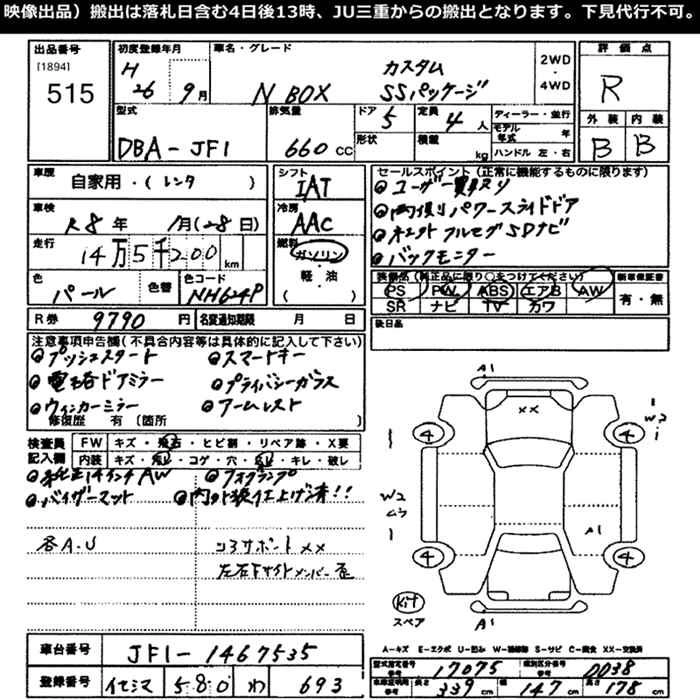 映像出品）搬出は落札日含む4日後13時、JU三重からの搬出となります。下見代行不可。
出品番号
[1894]
515
初度登録年月
H 26 9月
車名・グレード
N BOX
カスタム
SSパッケージ
2WD
・
4WD
評価点
R
外装 内装
B B
型式
DBA-JF1
排気量
660 CC
ドア 5
形状
定員 4人
積載 kg
ディーラー・並行
モデル年式 年
ハンドル 左・右
車歴
自家用・(レンタ )
車検
R8年 1月(28日)
走行
14万5千200km
色
パール
色替
色コード
NH624P
シフト
IAT
冷房
AAC
燃料
ガソリン
軽・油
( )
セールスポイント(正常に機能するものに限ります)
ユーザー買取り
両側パワースライドドア
フルセグSDナビ
バックモニター
装備品(純正品に限り○をつけてください)
PS PW ABS エアB AW
SR ナビ TV カワ
新車保証書
有・無
後日品
R券 9790円
名変通知期限 月 日
注意事項申告欄(不具合内容等は具体的に記入して下さい)
プッシュスタート スマートキー
電格ドアミラー プライバシーガラス
ウィンカーミラー アームレスト
修復歴 有 〔箇所 〕
検査員記入欄
FW キズ・飛石・ヒビ割・リペア跡・X要
内装 キズ・汚れ・コゲ・穴・ズレ・キレ・破レ
社外14インチAW フォグランプ
バイザーマット 内外装仕上げ済!!
各A.U
コアサポートXX
左右Fサイドメンバー歪
A1
XX
4 4
W2
W2
A1
4 4
Kit
スペア
A1
A-キズ E-エクボ U-凹み W-補修跡 S-サビ C-腐食 XX-交換済
車台番号 JF1-1467535
登録番号 イセシマ 580 わ 693
型式指定番号 参考 17075
類別区分番号 参考 0038
車体証明用 参考 長さ 339cm 幅 147cm 高さ 178cm